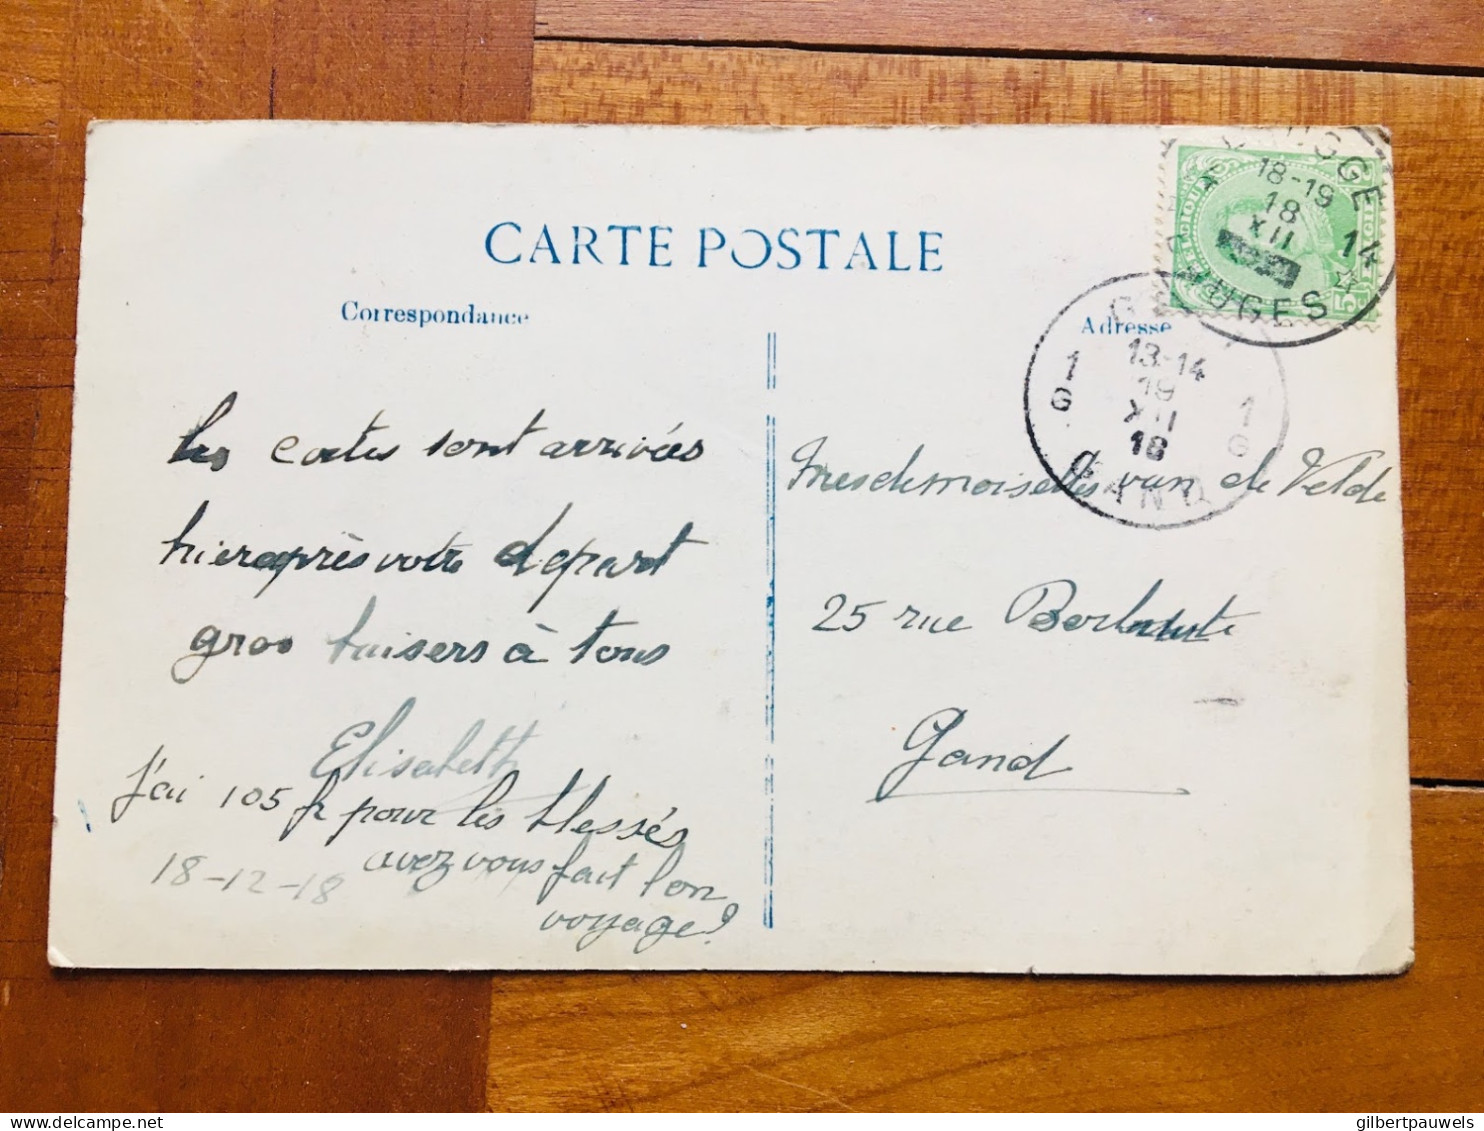 CARTE POSTALE
Correspondance
Adresse
BRUGGE 14
18-19
18
XII
BRUGES
1 G 1 G
13-14
19
XII
18
GAND
les cartes sont arrivées
hier après votre depart
gros baisers à tous
Elisabeth
j'ai 105 fr pour les blessés
avez vous fait bon
voyage?
18-12-18
Mesdemoiselles van de Velde
25 rue
Gand
gilbertpauwels